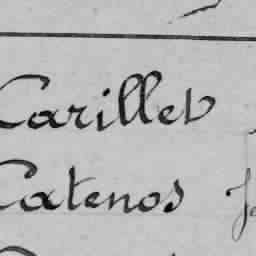 Carillet
Catenos